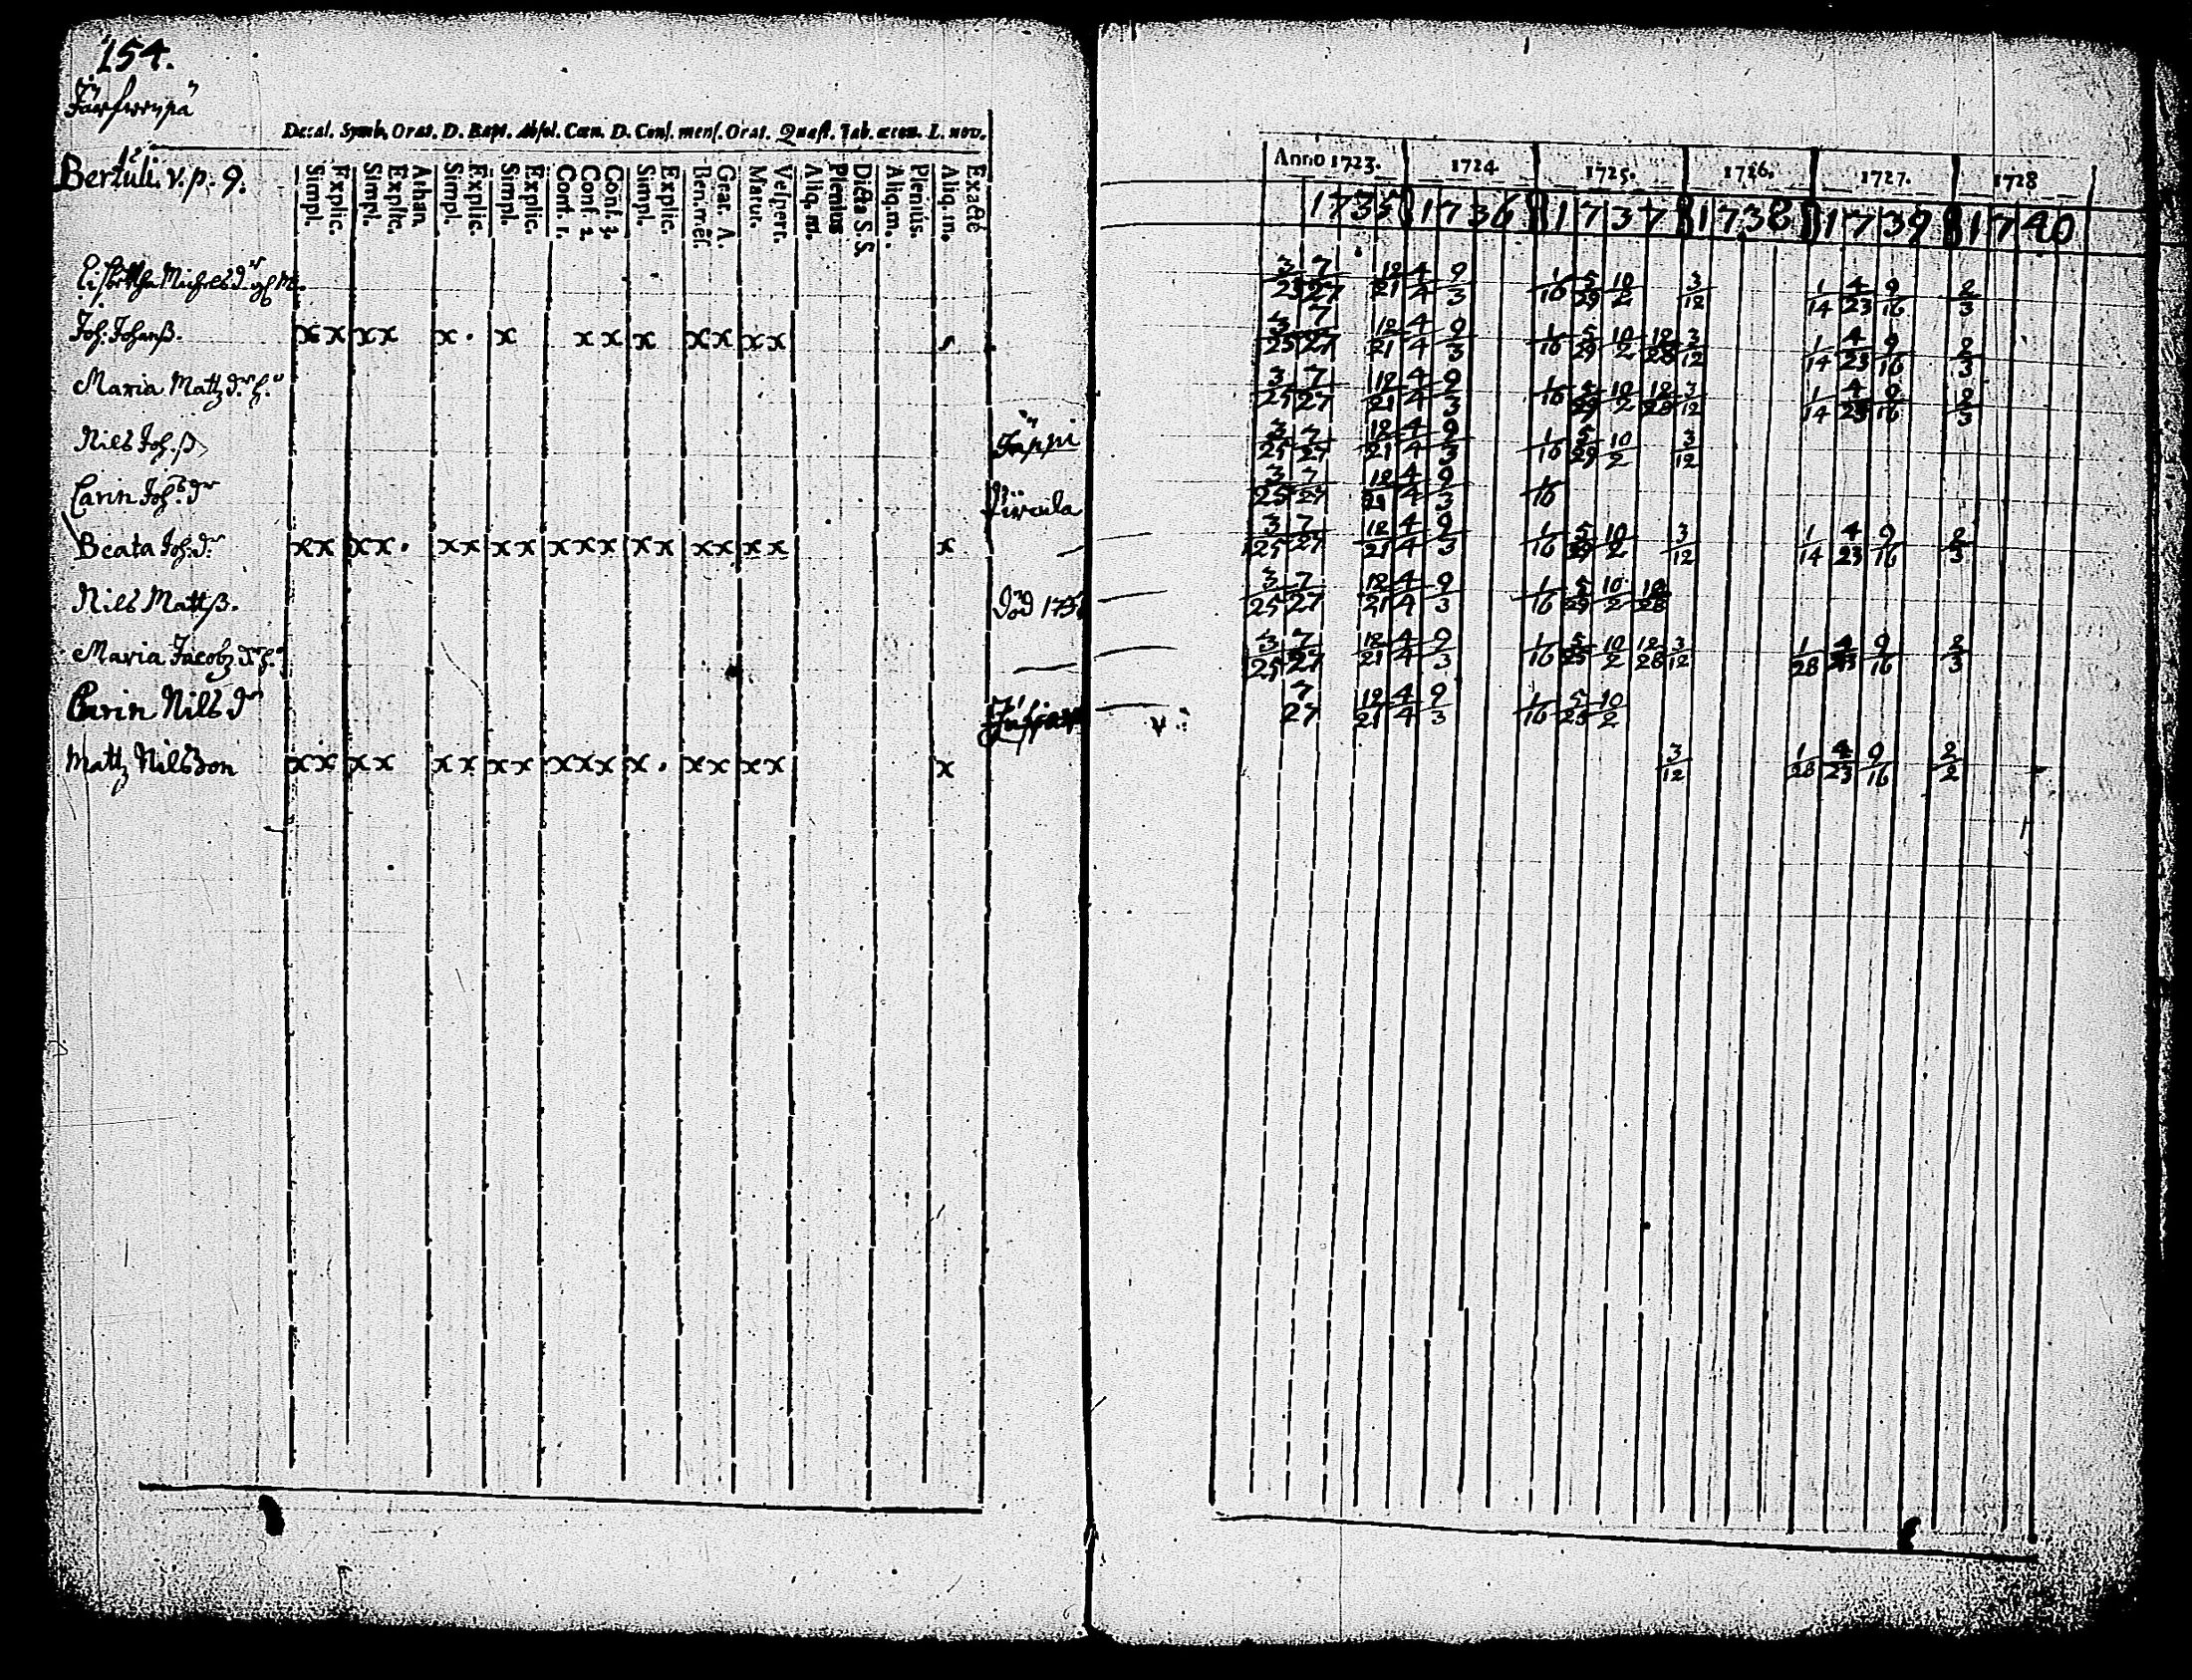 154.
Decal. Symb. Orat. D. Bapt. Absol. Cœn. D. Conf. mens. Orat. Quæst. Tab. œcon. L. nov.
Bertuli. v. p. 9.
Simpl. Explic. Simpl. Explic. Athan. Simpl. Explic. Simpl. Explic. Conf. 1. Conf. 2. Conf. 3. Simpl. Explic. Ben. mēs. Grat. A. Matut. Vespert. Aliq. m. Plenius Dicta S. S. Aliq. m. Plenius. Aliq. m. Exacté
Joh. Johanß.
x x x x x . x x x x x x x x
Maria Matz dr h.
Nils Joh.ß
Carin Joh: dr
Beata Joh: dr
x x x x . x x x x x x x x x x x x x x
Nils Mattß.
Maria Jacobz dr h.
Carin Nils dr
Mattz Nilsson
x x x x x x x x x x x x . x x x x x
Anno 1723. 1724 1725. 1726. 1727. 1728
1735 1736 1737 1738 1739 1740
3/25 7/27 12/21 4/4 9/3 1/16 5/29 10/2 3/12 1/14 4/23 9/16 2/3
3/25 7/27 12/21 4/4 9/3 1/16 5/29 10/2 12/28 3/12 1/14 4/23 9/16 2/3
3/25 7/27 12/21 4/4 9/3 1/16 5/29 10/2 12/28 3/12 1/14 4/23 9/16 2/3
3/25 7/27 12/21 4/4 9/3 1/16 5/29 10/2 3/12
3/25 7/27 12/21 4/4 9/3 1/16
3/25 7/27 12/21 4/4 9/3 1/16 5/29 10/2 3/12 1/14 4/23 9/16 2/3
3/25 7/27 12/21 4/4 9/3 1/16 5/29 10/2 12/28
3/25 7/27 12/21 4/4 9/3 1/16 5/29 10/2 12/28 3/12 1/28 4/23 9/16 2/3
7/27 12/21 4/4 9/3 1/16 5/29 10/2
3/12 1/28 4/23 9/16 2/2